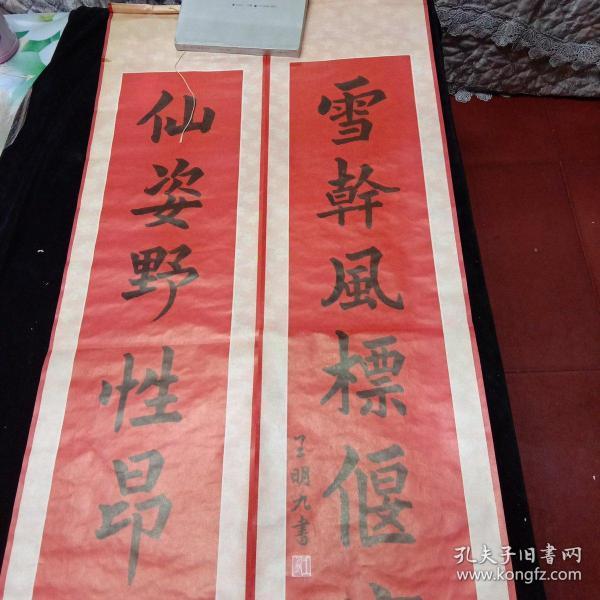 雪幹風標偃
仙姿野性昂
王明九書
孔夫子旧書网
www.kongfz.com